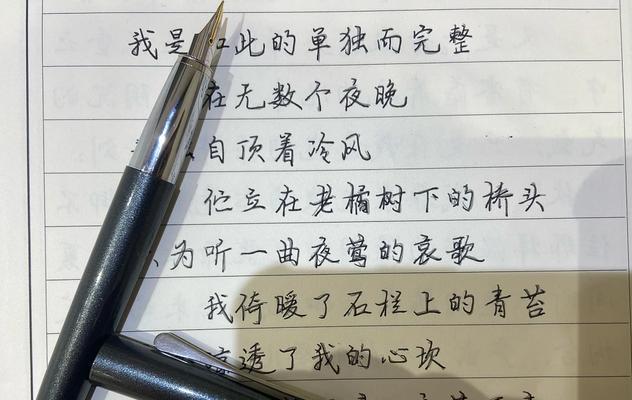 我是 此的单独而完整
在无数个夜晚
自顶着冷风
伫立在老橘树下的桥头
为听一曲夜莺的哀歌
我倚暖了石栏上的青苔
凉透了我的心坎